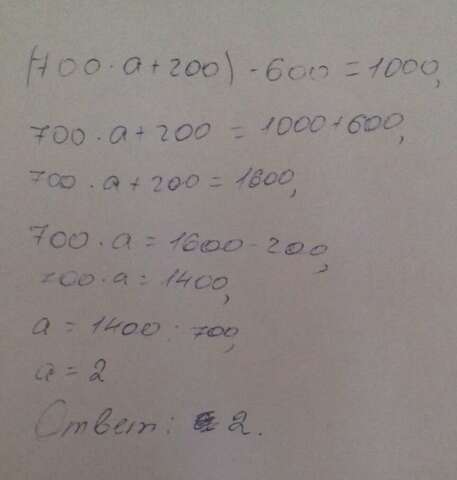 (700 · a + 200) - 600 = 1000,
700 · a + 200 = 1000 + 600,
700 · a + 200 = 1600,
700 · a = 1600 - 200,
700 · a = 1400,
a = 1400 : 700,
a = 2
Ответ: 2.